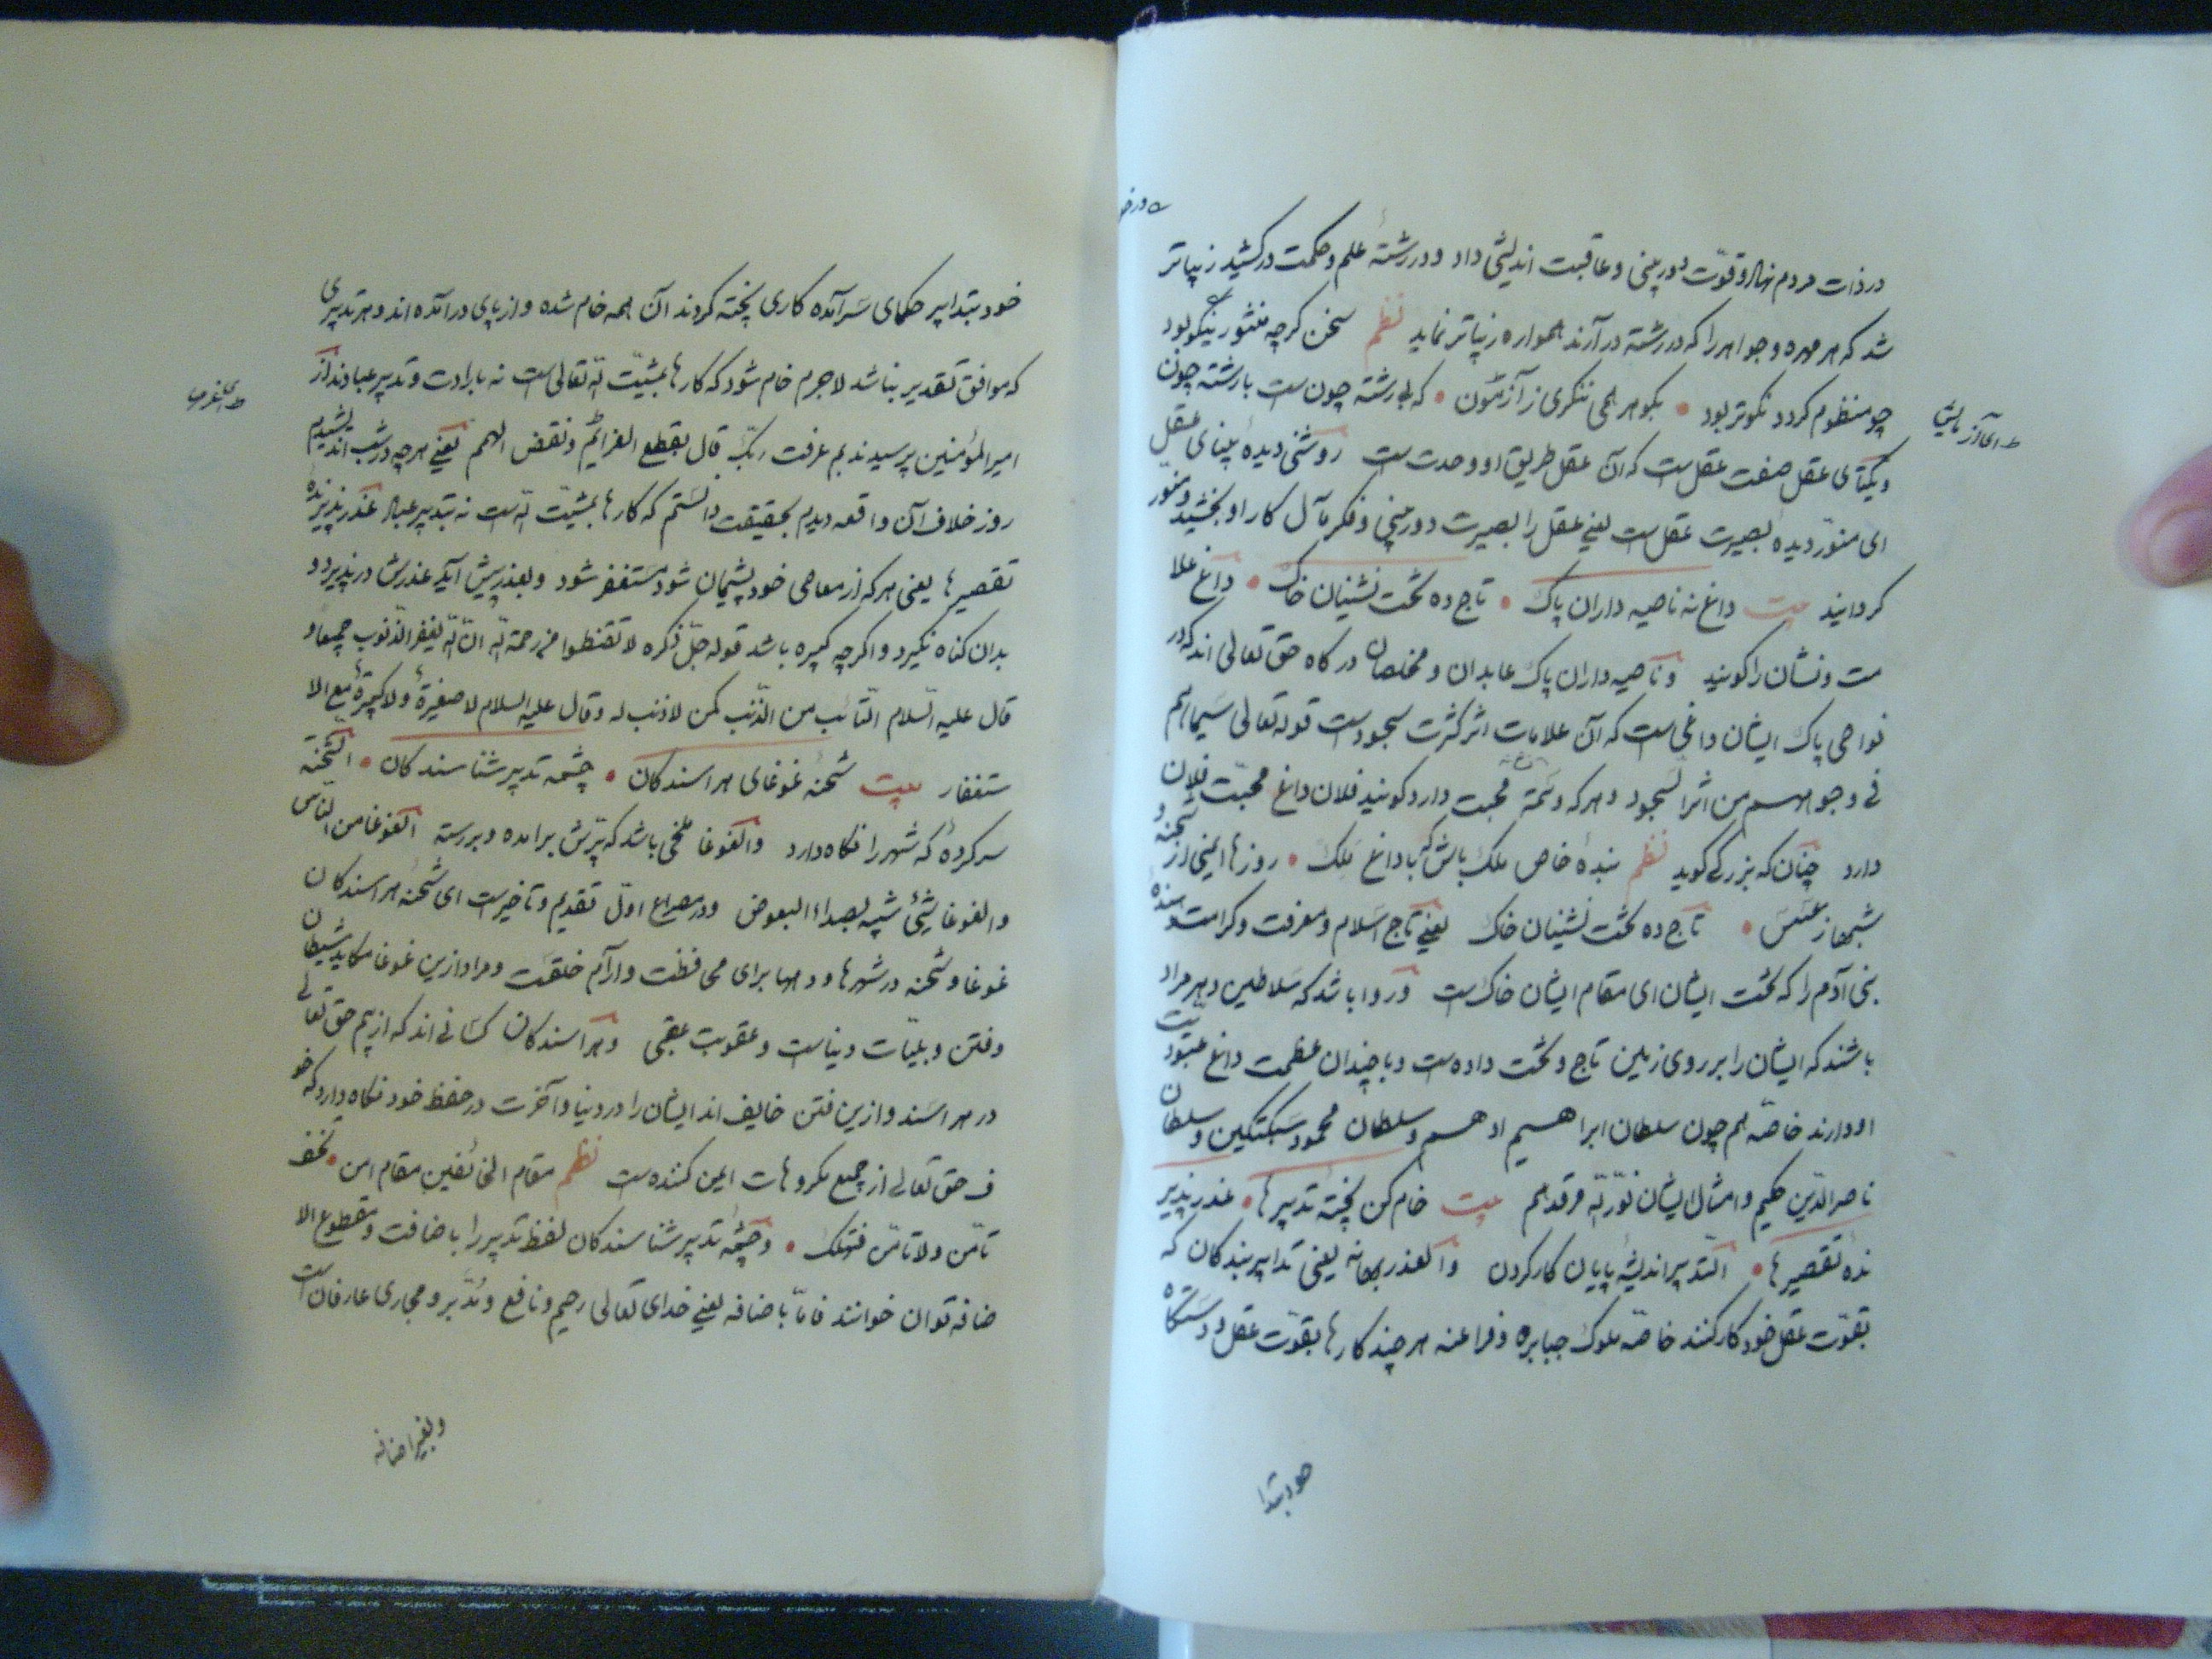 در ذات مردم نهاد و قوّت دوربینی و عاقبت اندیشی داد و در رشتهٔ علم و حکمت در کشید زیباتر
شد که هر مهره و جواهر را که در رشته در آرند همواره زیباتر نماید نظم سخن کرچه منثور نیکو بود
چو منظوم کردد نکوتر بود • بکوهر همی ننکری ز آزمون • که بی رشته چون ست با رشته چون
ط ای آزمایش
و یکتای عقل صفت عقل ست که آن عقل طریق او وحدت ست روشنی دیدهٔ بینای عقل
ای منوّر دیده بصیرت عقل ست یعنی عقل را بصیرت دوربینی و فکر مآل کار او بخشید و منوّر
کردانید بیت داغ نه ناصیه داران پاک • تاج ده تخت نشینان خاک • داغ علا
مت و نشان را کویند و ناصیه داران پاک عابدان و مخلصان درکاه حق تعالی اند که در
نواحی پاک ایشان داغی ست که آن علامات اثر کثرت سجودست قوله تعالی سیماهم
فی وجوههم من اثر السجود و هر که وسمهٔ محبت دارد کویند فلان داغ محبّت فلان
دارد چنان که بزرکی کوید نظم بندهٔ خاص ملک باش که با داغ ملک • روزها ایمنی از شحنه و
شبها ز عسس • تاج ده تخت نشینان خاک یعنی تاج اسلام و معرفت و کرامت دهنده
بنی آدم را که تخت ایشان ای مقام ایشان خاک ست و روا باشد که سلاطین دهر مراد
باشند که ایشان را بر روی زمین تاج و تخت داده ست و با چندان عظمت داغ عبودیّت
او دارند خاصّه هم چون سلطان ابراهیم ادهم و سلطان محمود سبکتکین و سلطان
ناصر الدین حکیم و امثال ایشان نوّر الله مرقدهم بیت خام کن پختهٔ تدبیرها • عذر پذیر
ندهٔ تقصیرها • التدبیر اندیشهٔ پایان کار کردن و العذر بهانه یعنی تدابیر بندکان که
بقوّت عقل خود کار کنند خاصّه ملوک جبابره و فراعنه هر چند کارها بقوّت عقل و دستکاه
خود بتدا
خود بتدابیر حکمای سرآمده کاری پخته کردند آن همه خام شده و از پای در آمده اند و هر تدبیری
که موافق تقدیر نباشد لاجرم خام شود که کارها بمشیّت الله تعالی ست نه بارادت و تدبیر عباد از
امیر المؤمنین پرسیدند بم عرفت ربّک قال بقطع العزائم و نقض الهمم یعنی هر چه در شب اندیشیدم
روز خلاف آن واقعه دیدم بحقیقت دانستم که کارها بمشیّت الله ست نه بتدبیر عباد عذر پذیرندهٔ
تقصیرها یعنی هر که از معاصی خود پشیمان شود مستغفر شود و بعذر پیش آید عذرش در پذیرد و
بدان کناه نکیرد و اکرچه کبیره باشد قوله جلّ ذکره لا تقنطوا من رحمة الله انّ الله یغفر الذّنوب جمیعا و
قال علیه السّلام التّائب من الذّنب کمن لا ذنب له و قال علیه السلام لا صغیرة و لا کبیرة مع الا
ستغفار بیت شحنهٔ غوغای هراسندکان • چشمهٔ تدبیر شناسندکان • الشّحنة
سرکردهٔ که شهر را نکاه دارد و الغوغا ملخی باشد که پرّش برآمده و بررسته الغوغا من النّاس
و الغوغا شیئ شبیه بصداء البعوض و در مصراع اوّل تقدیم و تأخیرست ای شحنهٔ هراسندکان
غوغا و شحنه در شهرها و دهها برای محافظت و آرام خلقست و مراد ازین غوغا مکاید شیطان
و فتن و بلیّات دنیاست و عقوبت عقبی و هراسندکان کسانی اند که از بیم حق تعالی
در هراسند و ازین فتن خایف اند ایشان را در دنیا و آخرت در حفظ خود نکاه دارد که خو
ف حق تعالی از جمیع مکروهات ایمن کننده ست نظم مقام الخائفین مقام امن • فخف
تامن و لا تامن فتهلک • و چشمهٔ تدبیر شناسندکان لفظ تدبیر را باضافت و مقطوع الا
ضافه توان خوانند فامّا باضافه یعنی خدای تعالی رحیم و نافع و مدبّر و مجاری عارفان ست
و بغیر اضافه